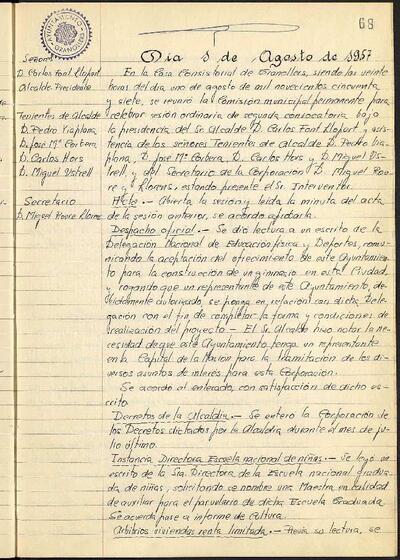 AYUNTAMIENTO GRANOLLERS
68
Dia 1 de Agosto de 1957
Señores
D. Carlos Font Llopart
Alcalde Presidente
Tenientes de Alcalde
D. Pedro Viaplana,
D. José Mª Corbera
D. Carlos Hors
D. Miguel Ustrell
Secretario
D. Miguel Roure Llorens
En la Casa Consistorial de Granollers, siendo las veinte
horas del dia uno de agosto de mil novecientos cincuenta
y siete, se reunió la Comisión municipal permanente para
celebrar sesión ordinaria de segunda convocatoria bajo
la presidencia del Sr. Alcalde D. Carlos Font Llopart y asis-
tencia de los señores Tenientes de Alcalde D. Pedro Via-
plana, D. José Mª Corbera, D. Carlos Hors y D. Miguel Us-
trell, y del Secretario de la Corporación D. Miguel Rou-
re y Llorens, estando presente el Sr. Interventor.
Acta.- Abierta la sesión y leida la minuta del acta
de la sesión anterior, se acordo aprobarla.
Despacho oficial.- Se dio lectura a un escrito de la
Delegación Nacional de Educación física y Deportes, comu-
nicando la aceptación del ofrecimiento de este Ayuntamien-
to para la construcción de un gimnasio en esta Ciudad,
y rogando que un representante de este Ayuntamiento, de-
bidamente autorizado, se ponga en relación con dicha Dele-
gación con el fin de completar la forma y condiciones de
realización del proyecto.- El Sr. Alcalde hizo notar la ne-
cesidad de que este Ayuntamiento tenga un representante
en la Capital de la Nación para la tramitación de los di-
versos asuntos de interés para esta Corporación.
Se acordo al enterado, con satisfacción de dicho es-
crito.
Decretos de la Alcaldia.- Se enteró la Corporación de
los Decretos dictados por la Alcaldia durante el mes de ju-
lio último.
Instancia Directora Escuela nacional de niñas.- Se leyó un
escrito de la Sra. Directora de la Escuela nacional gradua-
da de niñas, solicitando se nombre una Maestra en calidad
de auxiliar para el parvulario de dicha Escuela Graduada
Se acuerda pase a informe de Cultura.
Arbitrios viviendas renta limitada.- Previa su lectura, se